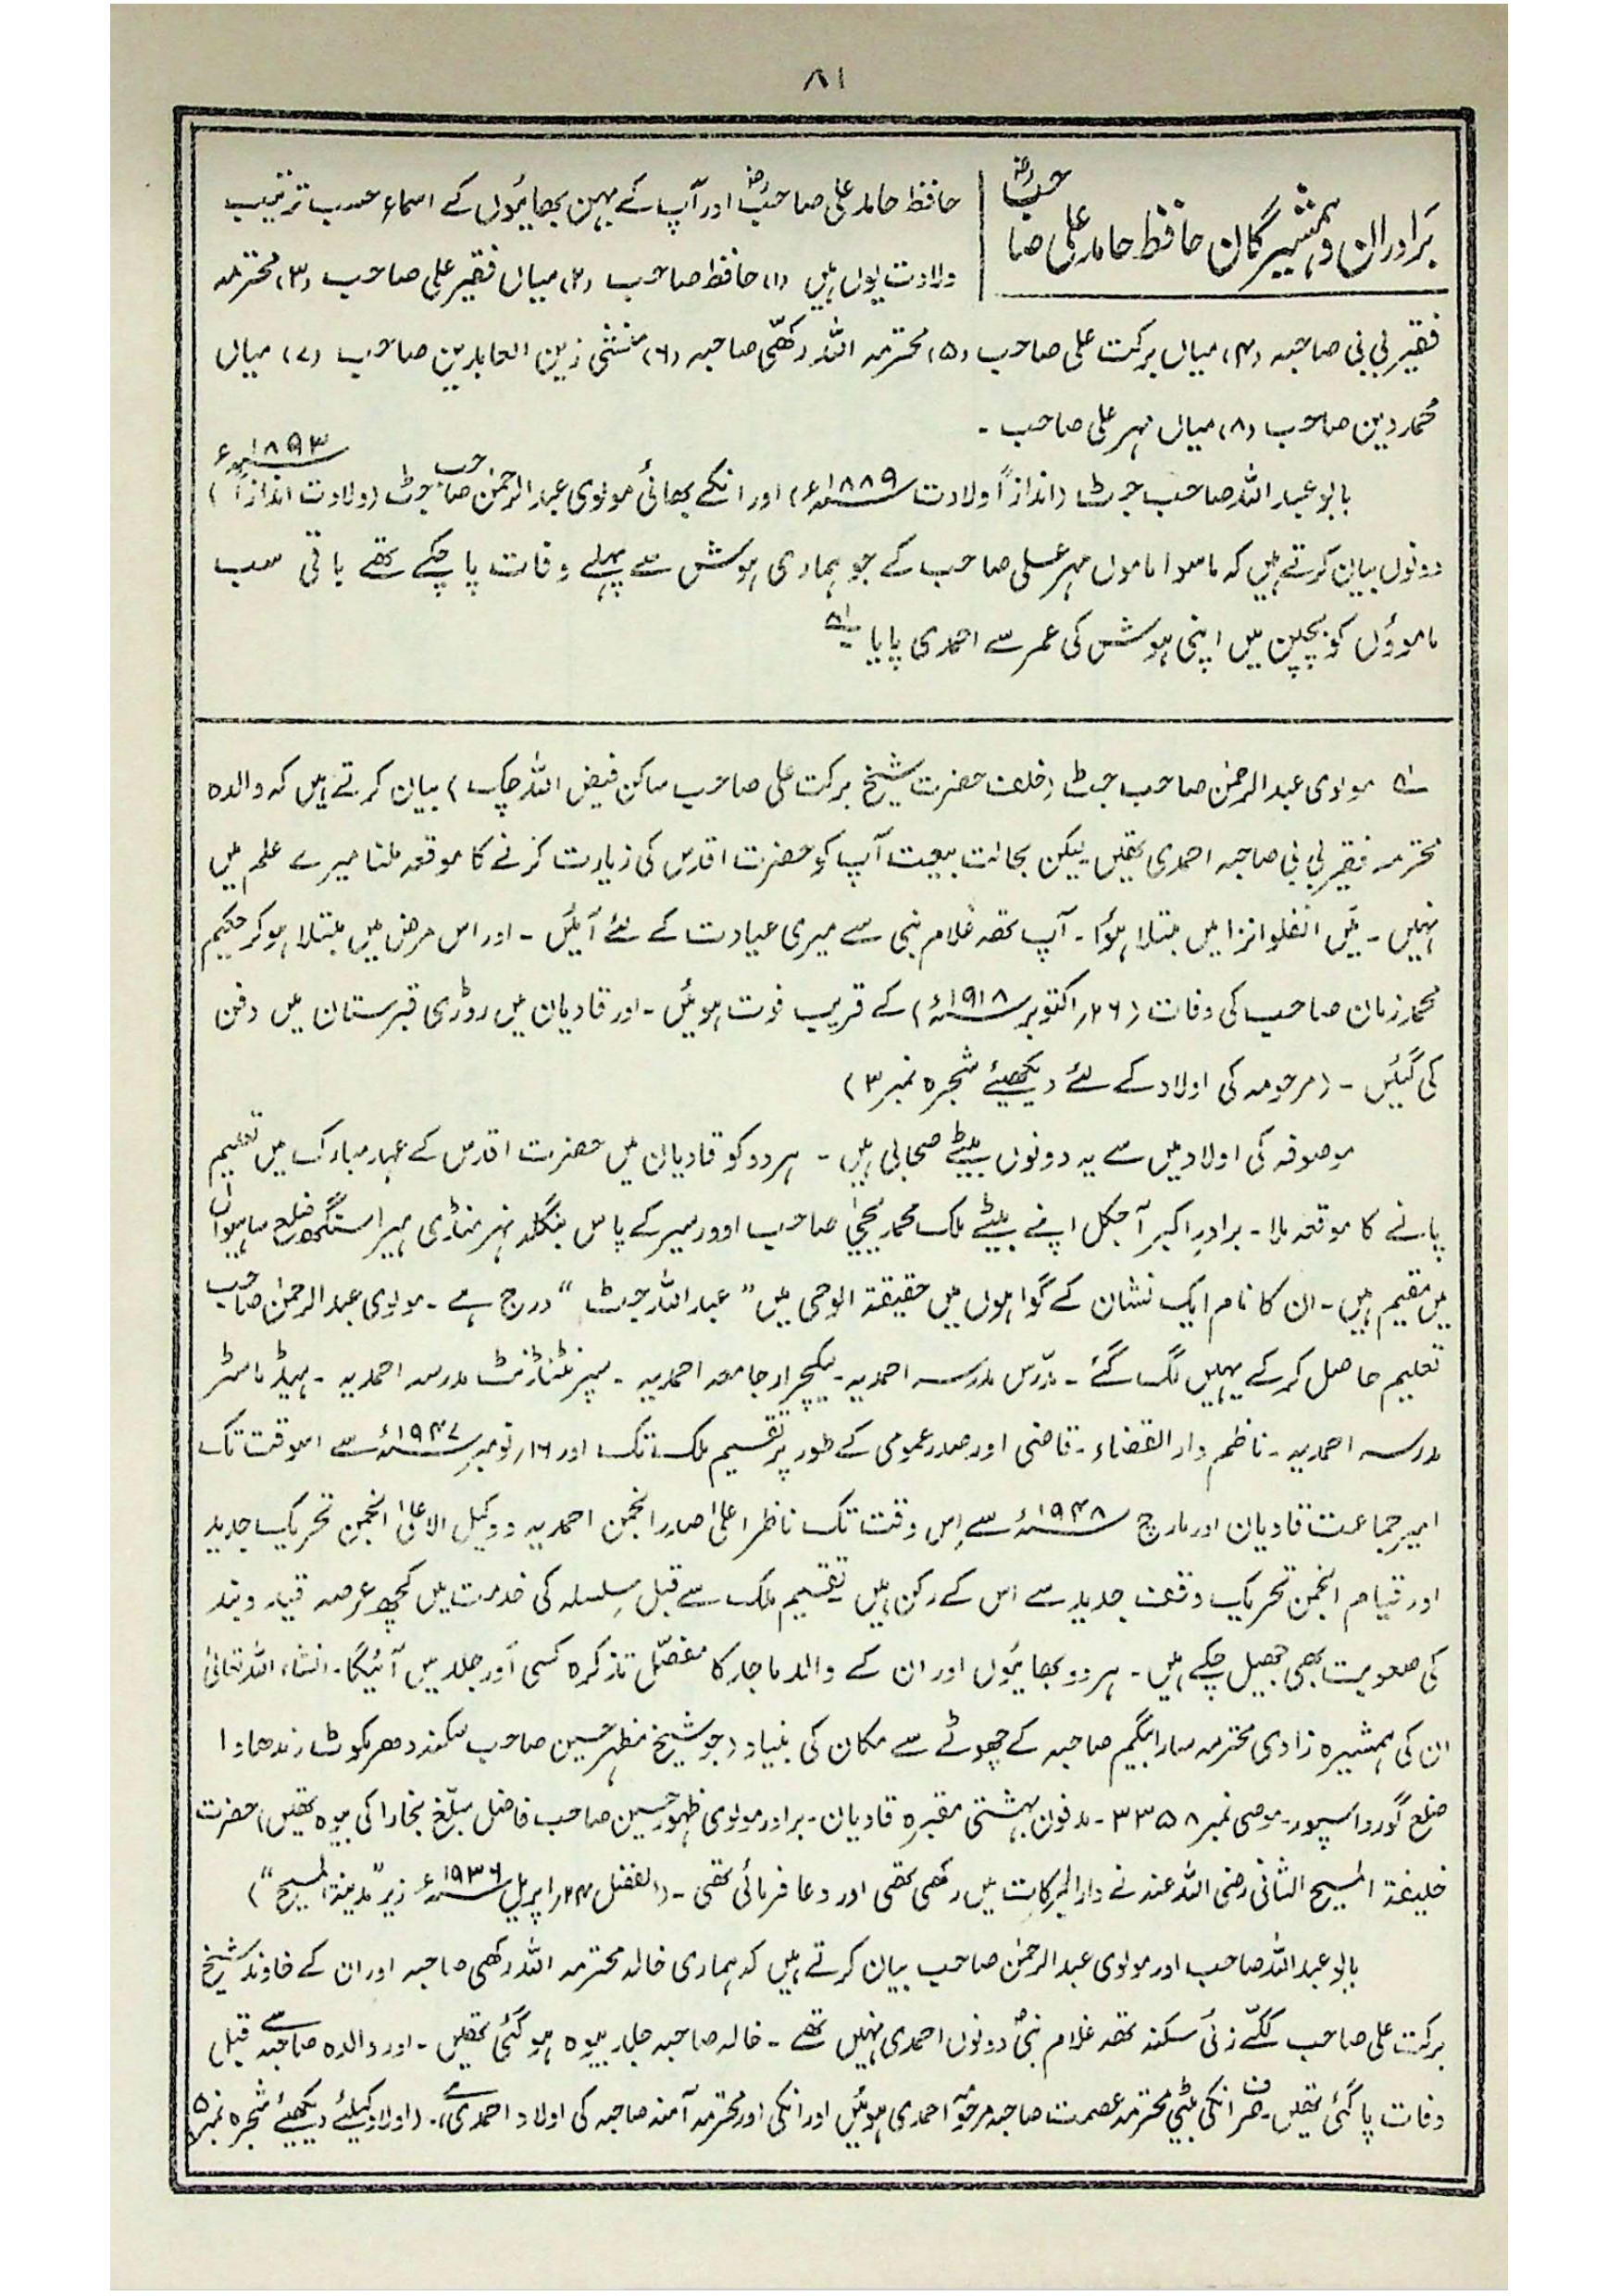 ۸۱
برادران و ہمشیرگان حافظ حامد علی صاحبؓ
حافظ حامد علی صاحبؓ اور آپ کے بہن بھائیوں کے اسماء حسب ترتیب
ولادت یوں ہیں (۱) حافظ صاحب (۲) میاں فقیر علی صاحب (۳) محترمہ
فقیر بی بی صاحبہ (۴) میاں برکت علی صاحب (۵) محترمہ اللہ رکھّی صاحبہ (۶) منشی زین العابدین صاحب (۷) میاں
محمد دین صاحب (۸) میاں مہر علی صاحب ۔
بابو عبد اللہ صاحب جٹ (اندازاً ولادت ۱۸۸۹ء) اور انکے بھائی مولوی عبد الرحمٰن صاحب جٹ (ولادت اندازاً ۱۸۹۳ء)
دونوں بیان کرتے ہیں کہ ماسوا ماموں مہر علی صاحب کے جو ہماری ہوش سے پہلے وفات پا چکے تھے باقی سب
ماموؤں کو بچپن میں اپنی ہوش کی عمر سے احمدی پایا ۔؎۱
؎۱ مولوی عبد الرحمٰن صاحب جٹ (خلف حضرت شیخ برکت علی صاحب ساکن فیض اللہ چک) بیان کرتے ہیں کہ والدہ
محترمہ فقیر بی بی صاحبہ احمدی تھیں لیکن بحالت بیعت آپ کو حضرت اقدس کی زیارت کرنے کا موقعہ ملنا میرے علم میں
نہیں ۔ مَیں انفلوانزا میں مبتلا ہؤا ۔ آپ تھہ غلام نبی سے میری عیادت کے لئے آئیں ۔ اور اس مرض میں مبتلا ہو کر حکیم
محمد زمان صاحب کی وفات (۲۶؍ اکتوبر ۱۹۱۸ء) کے قریب فوت ہوئیں ۔ اور قادیان میں روڑی قبرستان میں دفن
کی گئیں ۔ (مرحومہ کی اولاد کے لئے دیکھئے شجرہ نمبر ۳)
موصوفہ کی اولاد میں سے یہ دونوں بیٹے صحابی ہیں ۔ ہر دو کو قادیان میں حضرت اقدس کے عہد مبارک میں تعلیم
پانے کا موقعہ ملا ۔ برادرِ اکبر آجکل اپنے بیٹے ملک محمد یحییٰ صاحب اوورسیر کے پاس بنگلہ نہر منڈی ہیرا سنگھ ضلع ساہیوال
میں مقیم ہیں ۔ ان کا نام ایک نشان کے گواہوں میں حقیقۃ الوحی میں ”عبد اللہ جٹ“ درج ہے ۔ مولوی عبد الرحمٰن صاحب
تعلیم حاصل کر کے یہیں لگ گئے ۔ مدرّس مدرسہ احمدیہ ۔ لیکچرار جامعہ احمدیہ ۔ سپرنٹنڈنٹ مدرسہ احمدیہ ۔ ہیڈ ماسٹر
مدرسہ احمدیہ ۔ ناظم دار القضاء ۔ قاضی اور صدر عمومی کے طور پر تقسیم ملک تک اور ۱۶؍ نومبر ۱۹۴۷ء سے اسوقت تک
امیر جماعت قادیان اور مارچ ۱۹۴۸ء سے اِس وقت تک ناظر اعلیٰ صدر انجمن احمدیہ و وکیل الاعلیٰ انجمن تحریک جدید
اور قیام انجمن تحریک وقف جدید سے اس کے رکن ہیں تقسیم ملک سے قبل سلسلہ کی خدمت میں کچھ عرصہ قید و بند
کی صعوبت بھی جھیل چکے ہیں ۔ ہر دو بھائیوں اور ان کے والد ماجد کا مفصّل تذکرہ کسی اَور جلد میں آئیگا ۔ انشاء اللہ تعالیٰ
ان کی ہمشیرہ زادی محترمہ سارا بیگم صاحبہ کے چھوٹے سے مکان کی بنیاد (جو شیخ مظہر حسین صاحب سکنہ دھرمکوٹ رندھاوا
ضلع گورداسپور ۔ موصی نمبر ۳۳۵۸ ۔ مدفون بہشتی مقبرہ قادیان ۔ برادر مولوی ظہور حسین صاحب فاضل مبلّغ بخارا کی بیوہ تھیں) حضرت
خلیفۃ المسیح الثانی رضی اللہ عنہ نے دار البرکات میں رکھی تھی اور دعا فرمائی تھی ۔ (الفضل ۲۴؍ اپریل ۱۹۳۶ء زیر ”مدینۃ المسیح“)
بابو عبد اللہ صاحب اور مولوی عبد الرحمٰن صاحب بیان کرتے ہیں کہ ہماری خالہ محترمہ اللہ رکھی صاحبہ اور ان کے خاوند شیخ
برکت علی صاحب ککّے زئی سکنہ تھہ غلام نبیؐ دونوں احمدی نہیں تھے ۔ خالہ صاحبہ جلد بیوہ ہو گئی تھیں ۔ اور والدہ صاحبہ سے قبل
وفات پا گئی تھیں ۔ صرف انکی بیٹی محترمہ عصمت صاحبہ مرحومہ احمدی ہوئیں اور انکی اور محترمہ آمنہ صاحبہ کی اولاد احمدی ہے ۔ (اولاد کیلئے دیکھئے شجرہ نمبر ۵)